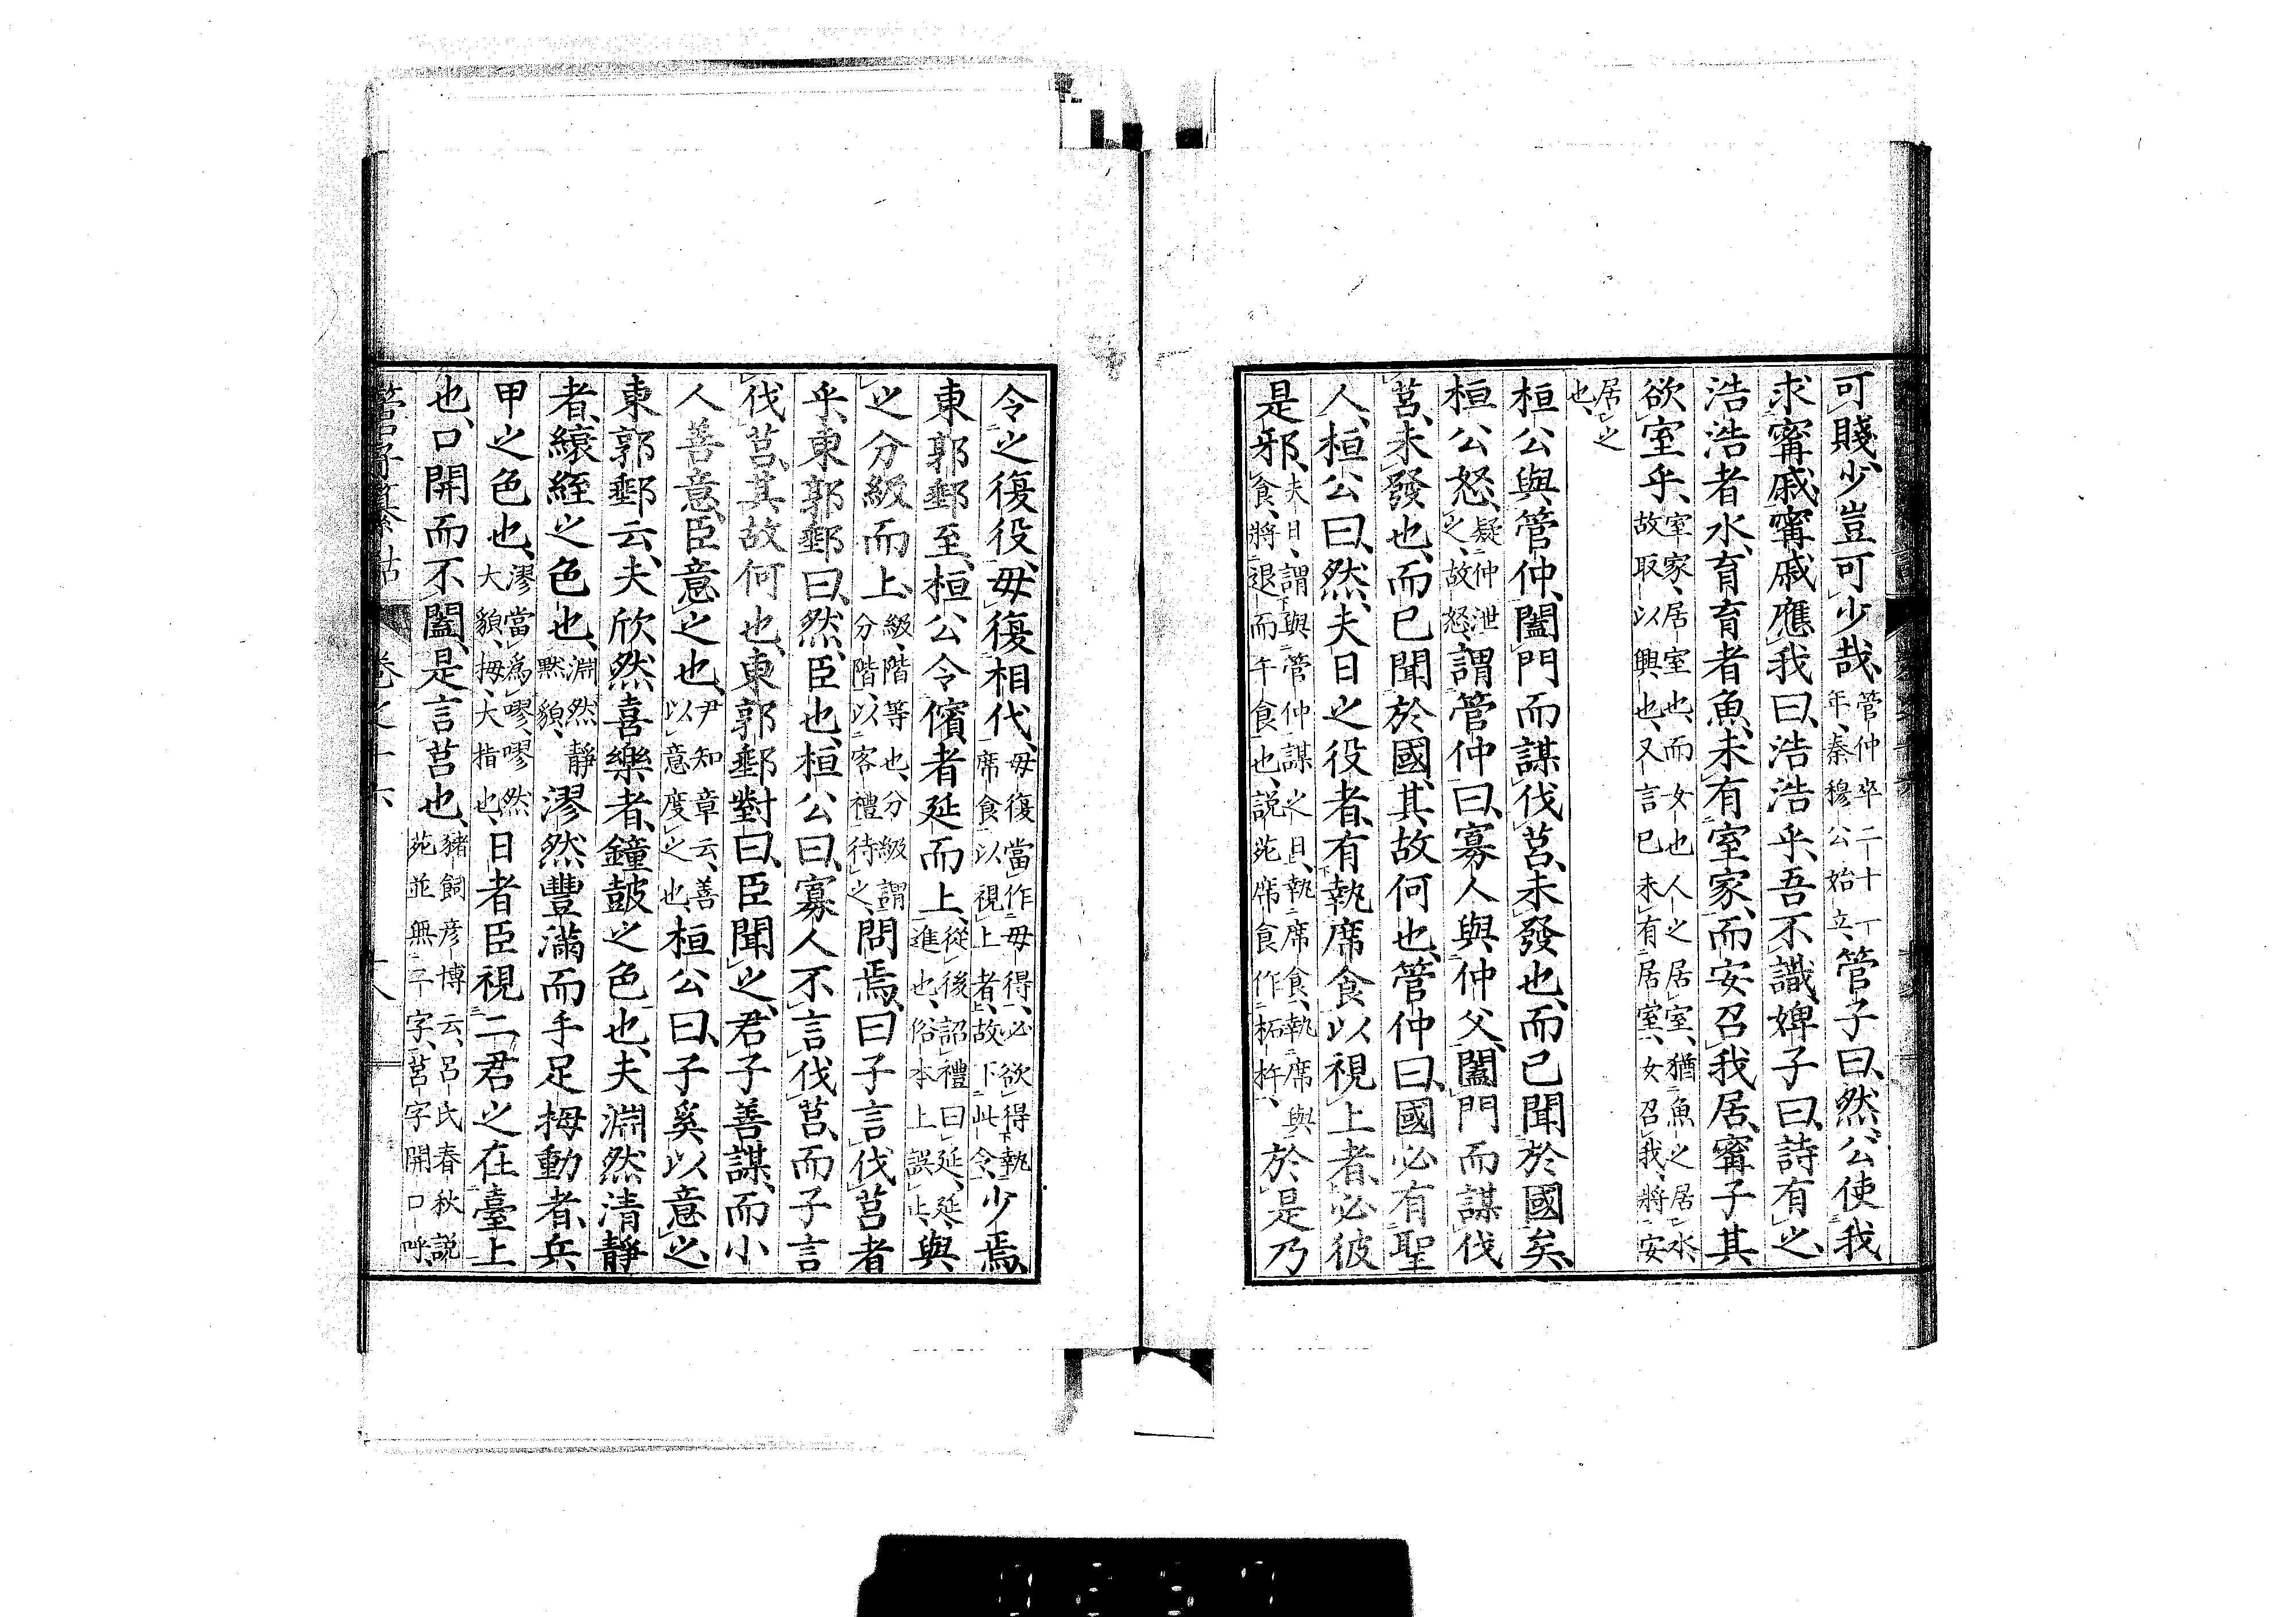 可賤、少豈可少哉、管仲卒二十一年、秦穆公始立、管子曰、然、公使我
求甯戚、甯戚應我曰、浩浩乎、吾不識、婢子曰、詩有之、
浩浩者水、育育者魚、未有室家、而安召我居、甯子其
欲室乎、室家、居室也、而女也、人之居室、猶魚之居水、故取以興也、又言已未有居室、女召我、將安
居之也、
桓公與管仲、闔門而謀伐莒、未發也、而已聞於國矣、
桓公怒、疑仲泄之、故怒、謂管仲曰、寡人與仲父、闔門而謀伐
莒、未發也、而已聞於國、其故何也、管仲曰、國必有聖
人、桓公曰、然、夫日之役者、有執席食以視上者、必彼
是邪、夫日、謂與管仲謀之日、執席食、執席與食、將退而午食也、説苑席食作柘杵、於是乃
令之復役、毋復相代、毋復當作毋得、必欲得執席食以視上者、故下此令、少焉、
東郭郵至、桓公令儐者延而上、從後詔禮曰延、延、進也、俗本上誤止、與
之分級而上、級、階等也、分級謂分階、以客禮待之、問焉、曰子言伐莒者
乎、東郭郵曰、然、臣也、桓公曰、寡人不言伐莒、而子言
伐莒、其故何也、東郭郵對曰、臣聞之、君子善謀、而小
人善意、臣意之也、尹知章云、善以意度之也、桓公曰、子奚以意之、
東郭郵云、夫欣然喜樂者、鐘鼓之色也、夫淵然清靜
者、縗絰之色也、淵然、靜默貌、漻然豐滿而手足拇動者、兵
甲之色也、漻當爲嘐、嘐然大貌、拇、大指也、日者臣視二君之在臺上
也、口開而不闔、是言莒也、豬飼彦博云、呂氏春秋説苑並無二字、莒字開口呼、